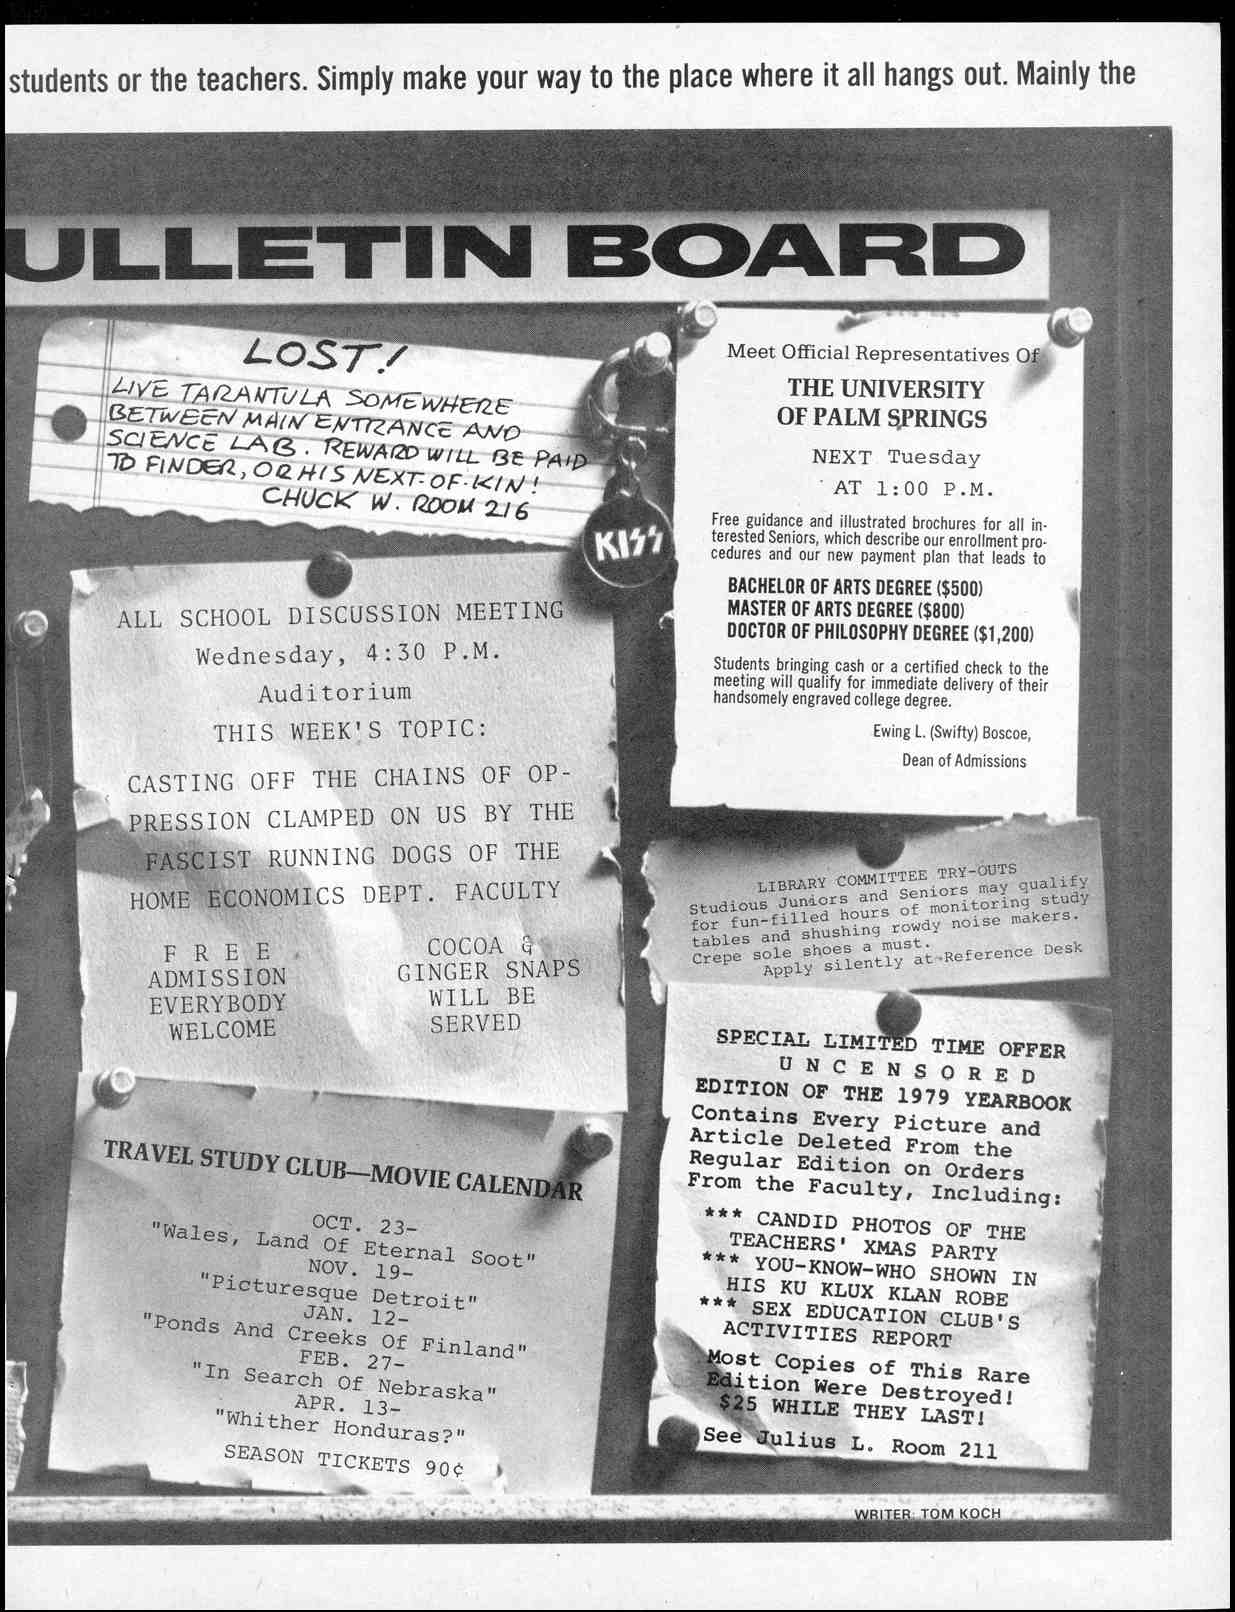 students or the teachers. Simply make your way to the place where it all hangs out. Mainly the
ULLETIN BOARD
LOST!
LIVE TARANTULA SOMEWHERE
BETWEEN MAIN ENTRANCE AND
SCIENCE LAB. REWARD WILL BE PAID
TO FINDER, OR HIS NEXT-OF-KIN!
CHUCK W. ROOM 216
KISS
Meet Official Representatives Of
THE UNIVERSITY
OF PALM SPRINGS
NEXT Tuesday
AT 1:00 P.M.
Free guidance and illustrated brochures for all in-
terested Seniors, which describe our enrollment pro-
cedures and our new payment plan that leads to
BACHELOR OF ARTS DEGREE ($500)
MASTER OF ARTS DEGREE ($800)
DOCTOR OF PHILOSOPHY DEGREE ($1,200)
Students bringing cash or a certified check to the
meeting will qualify for immediate delivery of their
handsomely engraved college degree.
Ewing L. (Swifty) Boscoe,
Dean of Admissions
ALL SCHOOL DISCUSSION MEETING
Wednesday, 4:30 P.M.
Auditorium
THIS WEEK'S TOPIC:
CASTING OFF THE CHAINS OF OP-
PRESSION CLAMPED ON US BY THE
FASCIST RUNNING DOGS OF THE
HOME ECONOMICS DEPT. FACULTY
F R E E
ADMISSION
EVERYBODY
WELCOME
COCOA &
GINGER SNAPS
WILL BE
SERVED
LIBRARY COMMITTEE TRY-OUTS
Studious Juniors and Seniors may qualify
for fun-filled hours of monitoring study
tables and shushing rowdy noise makers.
Crepe sole shoes a must.
Apply silently at Reference Desk
TRAVEL STUDY CLUB—MOVIE CALENDAR
OCT. 23-
"Wales, Land Of Eternal Soot"
NOV. 19-
"Picturesque Detroit"
JAN. 12-
"Ponds And Creeks Of Finland"
FEB. 27-
"In Search Of Nebraska"
APR. 13-
"Whither Honduras?"
SEASON TICKETS 90¢
SPECIAL LIMITED TIME OFFER
U N C E N S O R E D
EDITION OF THE 1979 YEARBOOK
Contains Every Picture and
Article Deleted From the
Regular Edition on Orders
From the Faculty, Including:
*** CANDID PHOTOS OF THE
TEACHERS' XMAS PARTY
*** YOU-KNOW-WHO SHOWN IN
HIS KU KLUX KLAN ROBE
*** SEX EDUCATION CLUB'S
ACTIVITIES REPORT
Most Copies of This Rare
Edition Were Destroyed!
$25 WHILE THEY LAST!
See Julius L. Room 211
WRITER: TOM KOCH